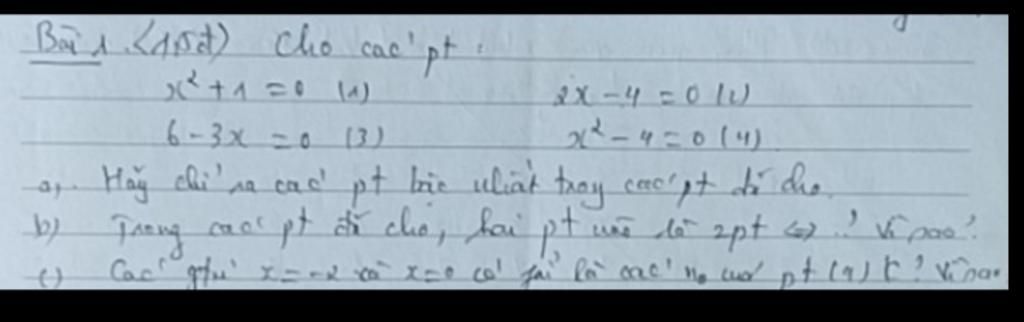 Bài 1. (1,5đ) Cho các pt :
x² + 1 = 0 (1) 2x - 4 = 0 (2)
6 - 3x = 0 (3) x² - 4 = 0 (4)
a, Hãy chỉ ra các pt bậc nhất trong các pt đã cho.
b) Trong các pt đã cho, hai pt nào là 2pt <=> ? Vì sao?
c) Các gtrị x = -2 và x = 0 có phải là các no của pt (4) k? Vì sao